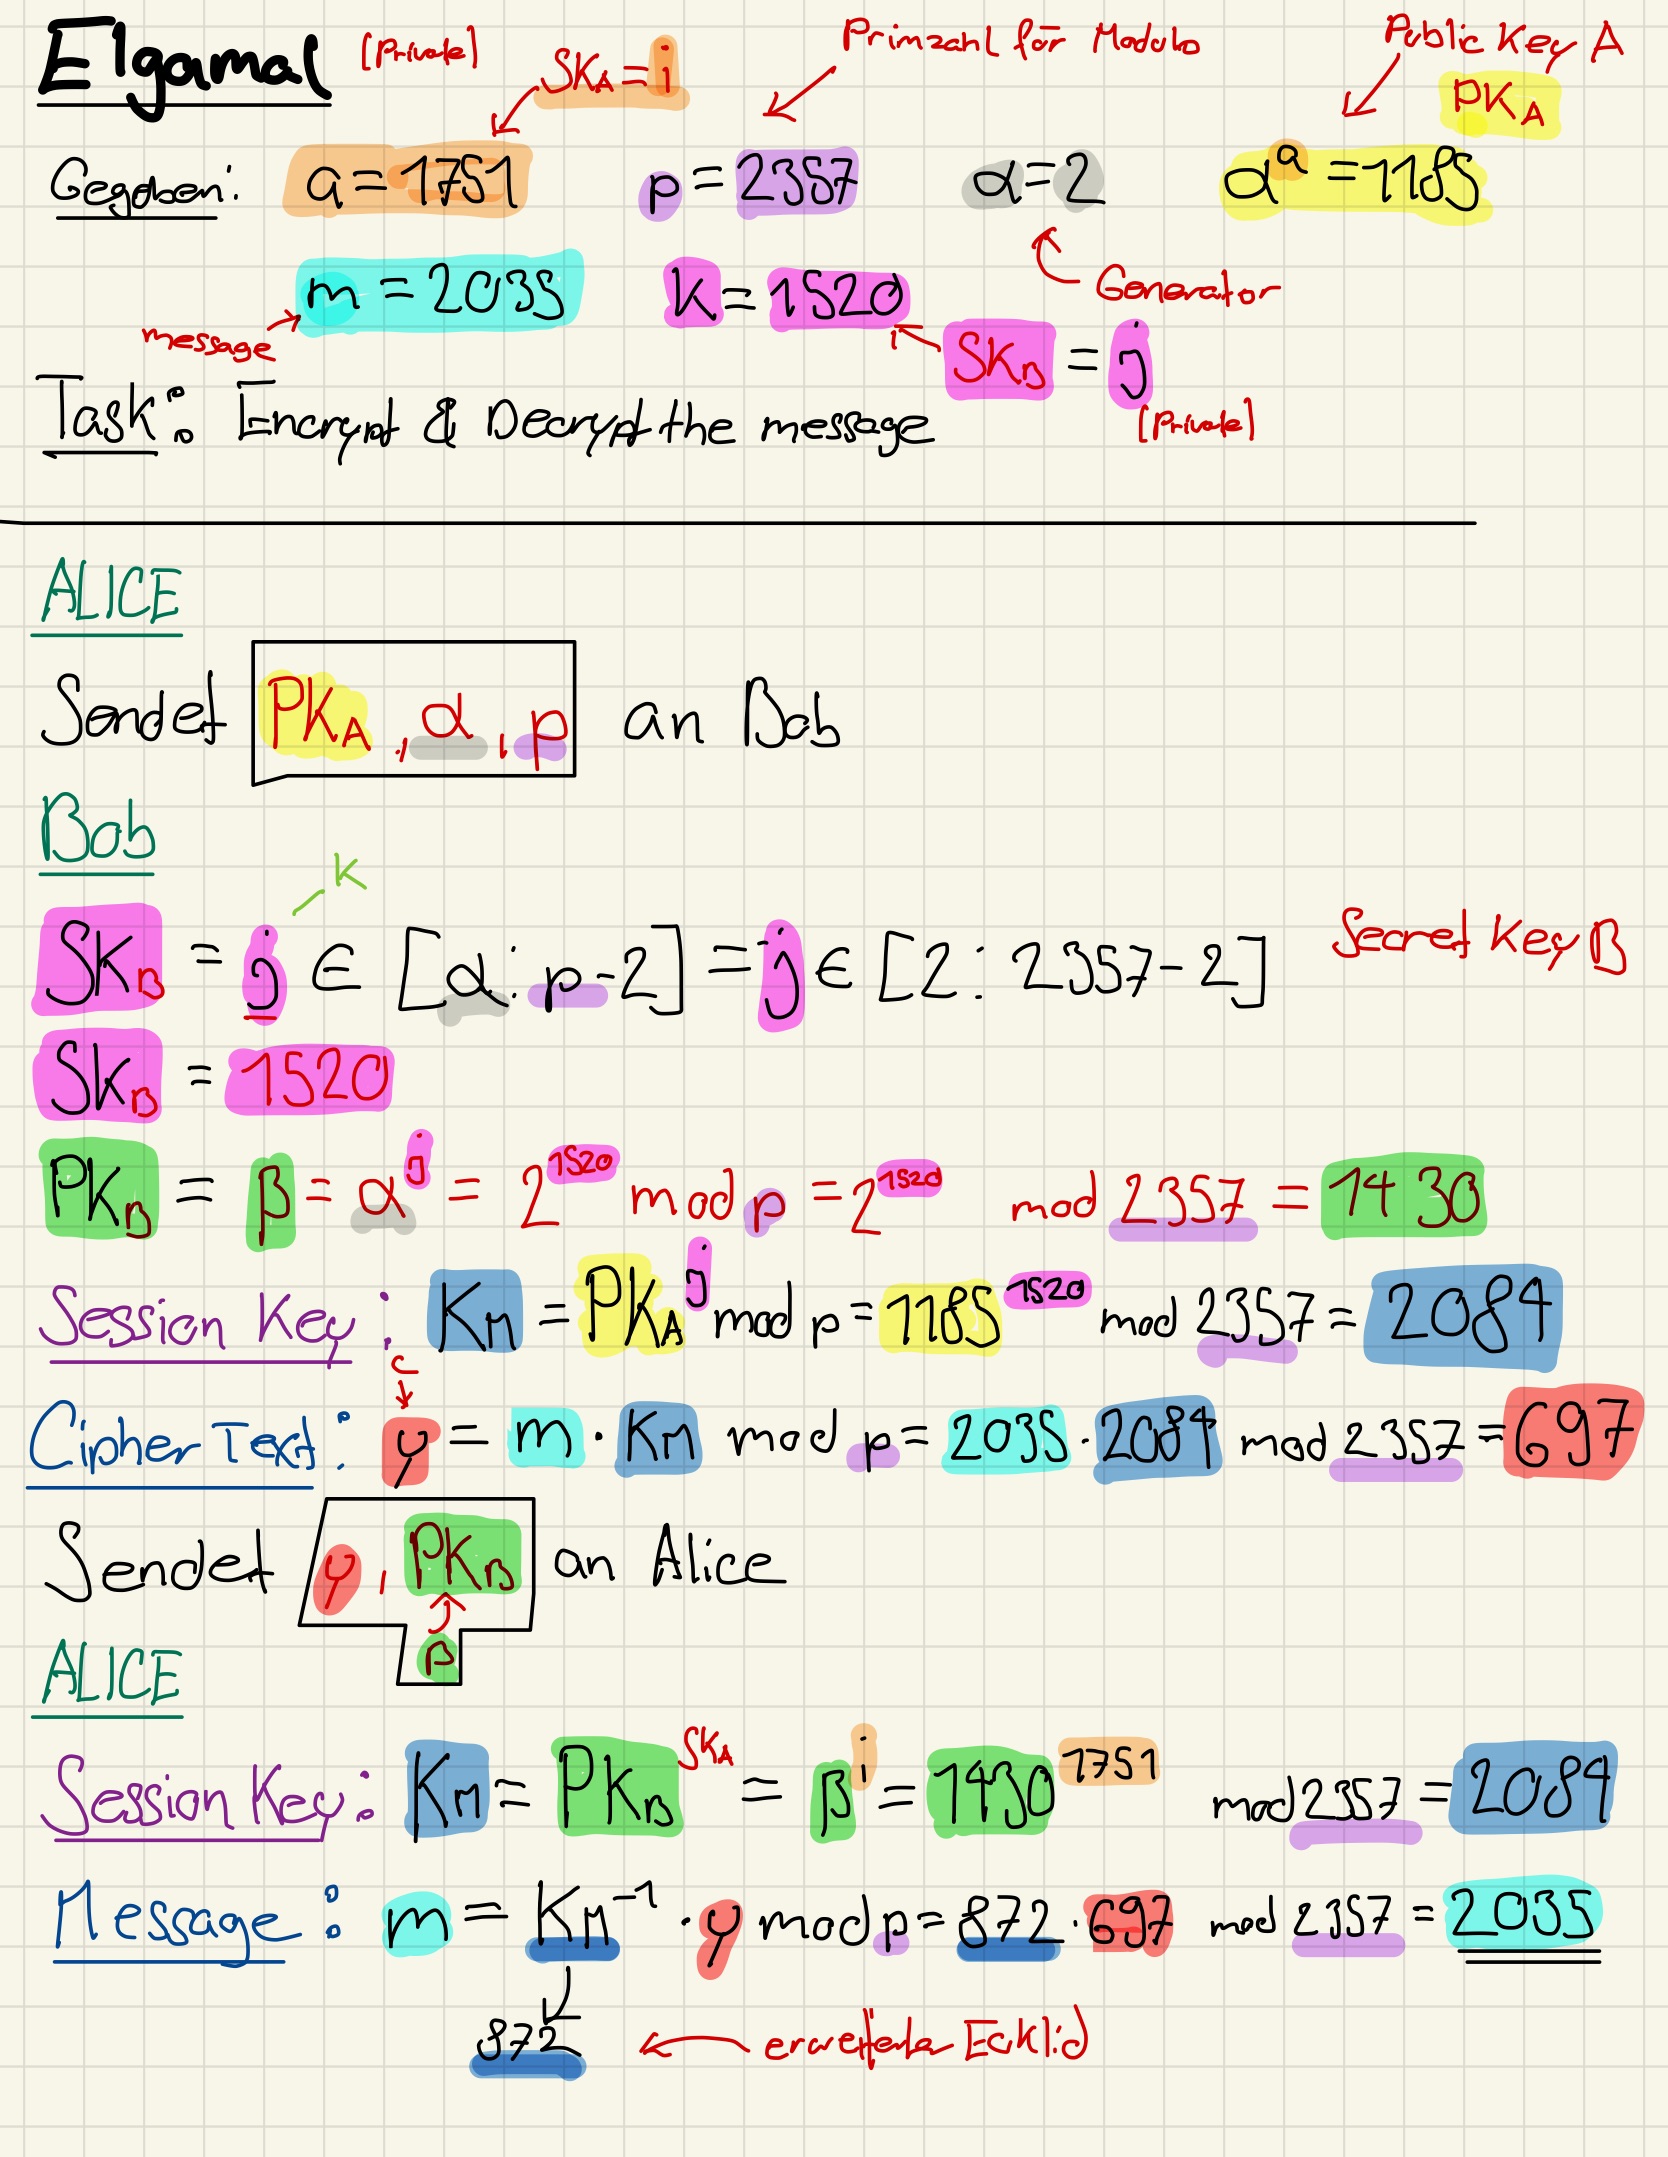 Elgamal [Private] SKA = i Primzahl für Modulo Public Key A
PKA
Gegeben: a = 1751 p = 2357 α = 2 α^a = 1185
m = 2035 k = 1520 Generator
message SKB = j
[Private]
Task: Encrypt & Decrypt the message
ALICE
Sendet PKA , α , p an Bob
Bob
k
SKB = j ∈ [α : p-2] = j ∈ [2 : 2357-2] Secret Key B
SKB = 1520
PKB = β = α^j = 2^1520 mod p = 2^1520 mod 2357 = 1430
Session Key: KM = PKA^j mod p = 1185^1520 mod 2357 = 2084
c
Cipher Text: y = m · KM mod p = 2035 · 2084 mod 2357 = 697
Sendet y , PKB an Alice
β
ALICE
Session Key: KM = PKB^SKA = β^i = 1430^1751 mod 2357 = 2084
Message: m = KM^-1 · y mod p = 872 · 697 mod 2357 = 2035
872